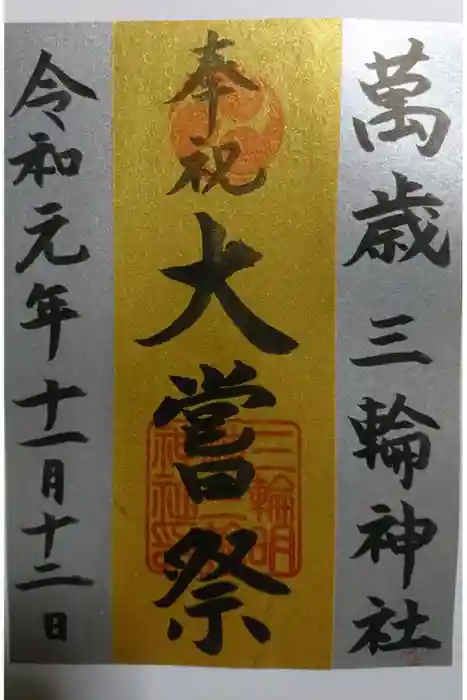 萬歳 三輪神社
奉祝
大嘗祭
令和元年十一月十二日